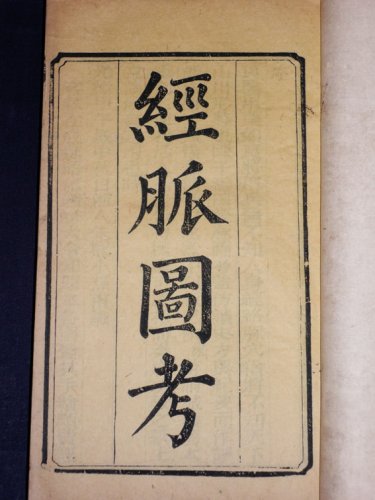 經脈圖考